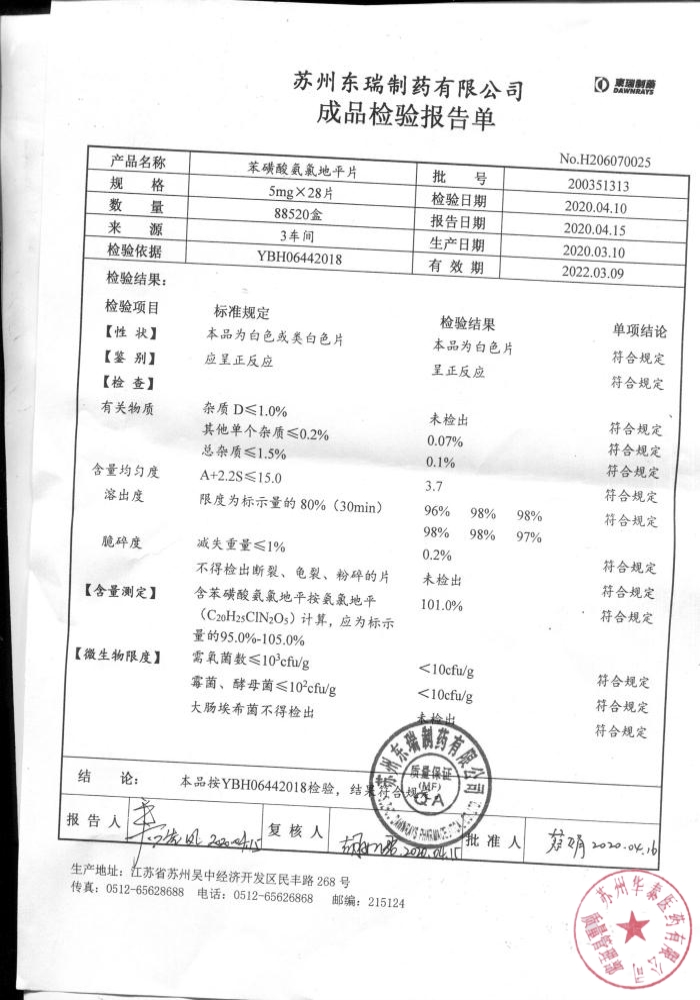 苏州东瑞制药有限公司
東瑞制藥
DAWNRAYS
成品检验报告单
No.H206070025
产品名称 苯磺酸氨氯地平片 批 号 200351313
规 格 5mg×28片 检验日期 2020.04.10
数 量 88520盒 报告日期 2020.04.15
来 源 3车间 生产日期 2020.03.10
检验依据 YBH06442018 有 效 期 2022.03.09
检验结果:
检验项目 标准规定 检验结果 单项结论
【性 状】 本品为白色或类白色片 本品为白色片 符合规定
【鉴 别】 应呈正反应 呈正反应 符合规定
【检 查】
有关物质 杂质 D≤1.0% 未检出 符合规定
其他单个杂质≤0.2% 0.07% 符合规定
总杂质≤1.5% 0.1% 符合规定
含量均匀度 A+2.2S≤15.0 3.7 符合规定
溶出度 限度为标示量的 80%（30min） 96% 98% 98% 符合规定
98% 98% 97%
脆碎度 减失重量≤1% 0.2% 符合规定
不得检出断裂、龟裂、粉碎的片 未检出 符合规定
【含量测定】 含苯磺酸氨氯地平按氨氯地平 101.0% 符合规定
（C₂₀H₂₅ClN₂O₅）计算，应为标示
量的95.0%-105.0%
【微生物限度】 需氧菌数≤10³cfu/g <10cfu/g 符合规定
霉菌、酵母菌≤10²cfu/g <10cfu/g 符合规定
大肠埃希菌不得检出 未检出 符合规定
苏州东瑞制药有限公司
质量保证
(MF)
QA
结 论: 本品按YBH06442018检验，结果符合规定。
报 告 人 2020.04.15 复 核 人 2020.04.15 批 准 人 2020.04.16
生产地址: 江苏省苏州吴中经济开发区民丰路 268 号
传真: 0512-65628688 电话: 0512-65626868 邮编: 215124
苏州华泰医药有限公司